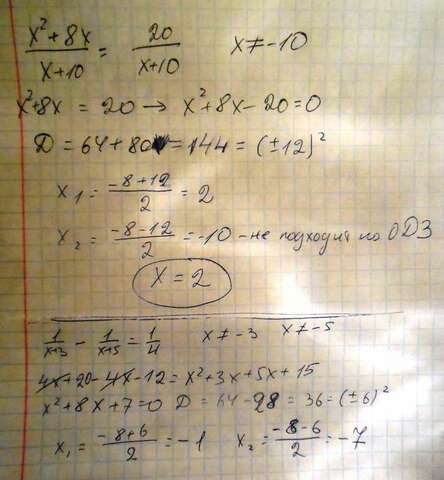 (x²+8x)/(x+10) = 20/(x+10) x ≠ -10
x²+8x = 20 → x²+8x-20=0
D = 64+80 = 144 = (±12)²
x₁ = (-8+12)/2 = 2
x₂ = (-8-12)/2 = -10 - не подходит по ОДЗ
x = 2
1/(x+3) - 1/(x+5) = 1/4 x ≠ -3 x ≠ -5
4x+20-4x-12 = x²+3x+5x+15
x²+8x+7=0 D = 64-28 = 36 = (±6)²
x₁ = (-8+6)/2 = -1 x₂ = (-8-6)/2 = -7